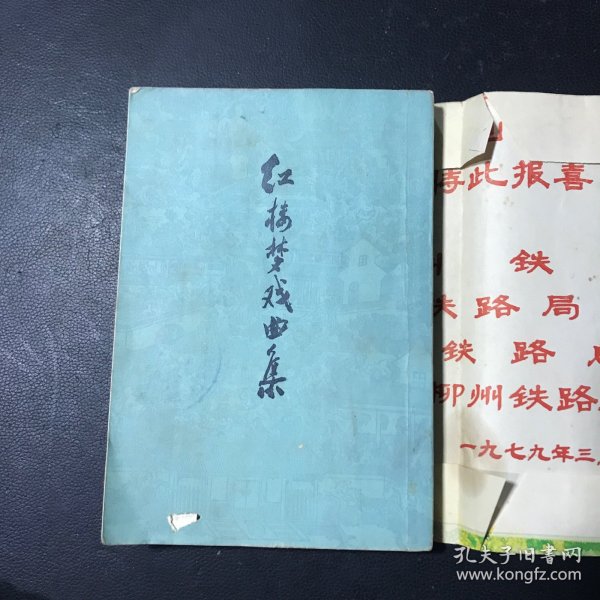 红楼梦戏曲集
此报喜
铁
路局
铁路
柳州铁路
一九七九年三
孔夫子旧书网
www.kongfz.com